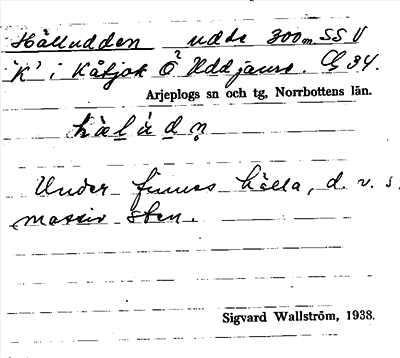 Hälludden udde 300 m SSV
"K" i Kåtjok Ö Uddjaure. Cg 34.
Arjeplogs sn och tg, Norrbottens län.
Under finnes hälla, d. v. s.
massiv sten.
Sigvard Wallström, 1938.